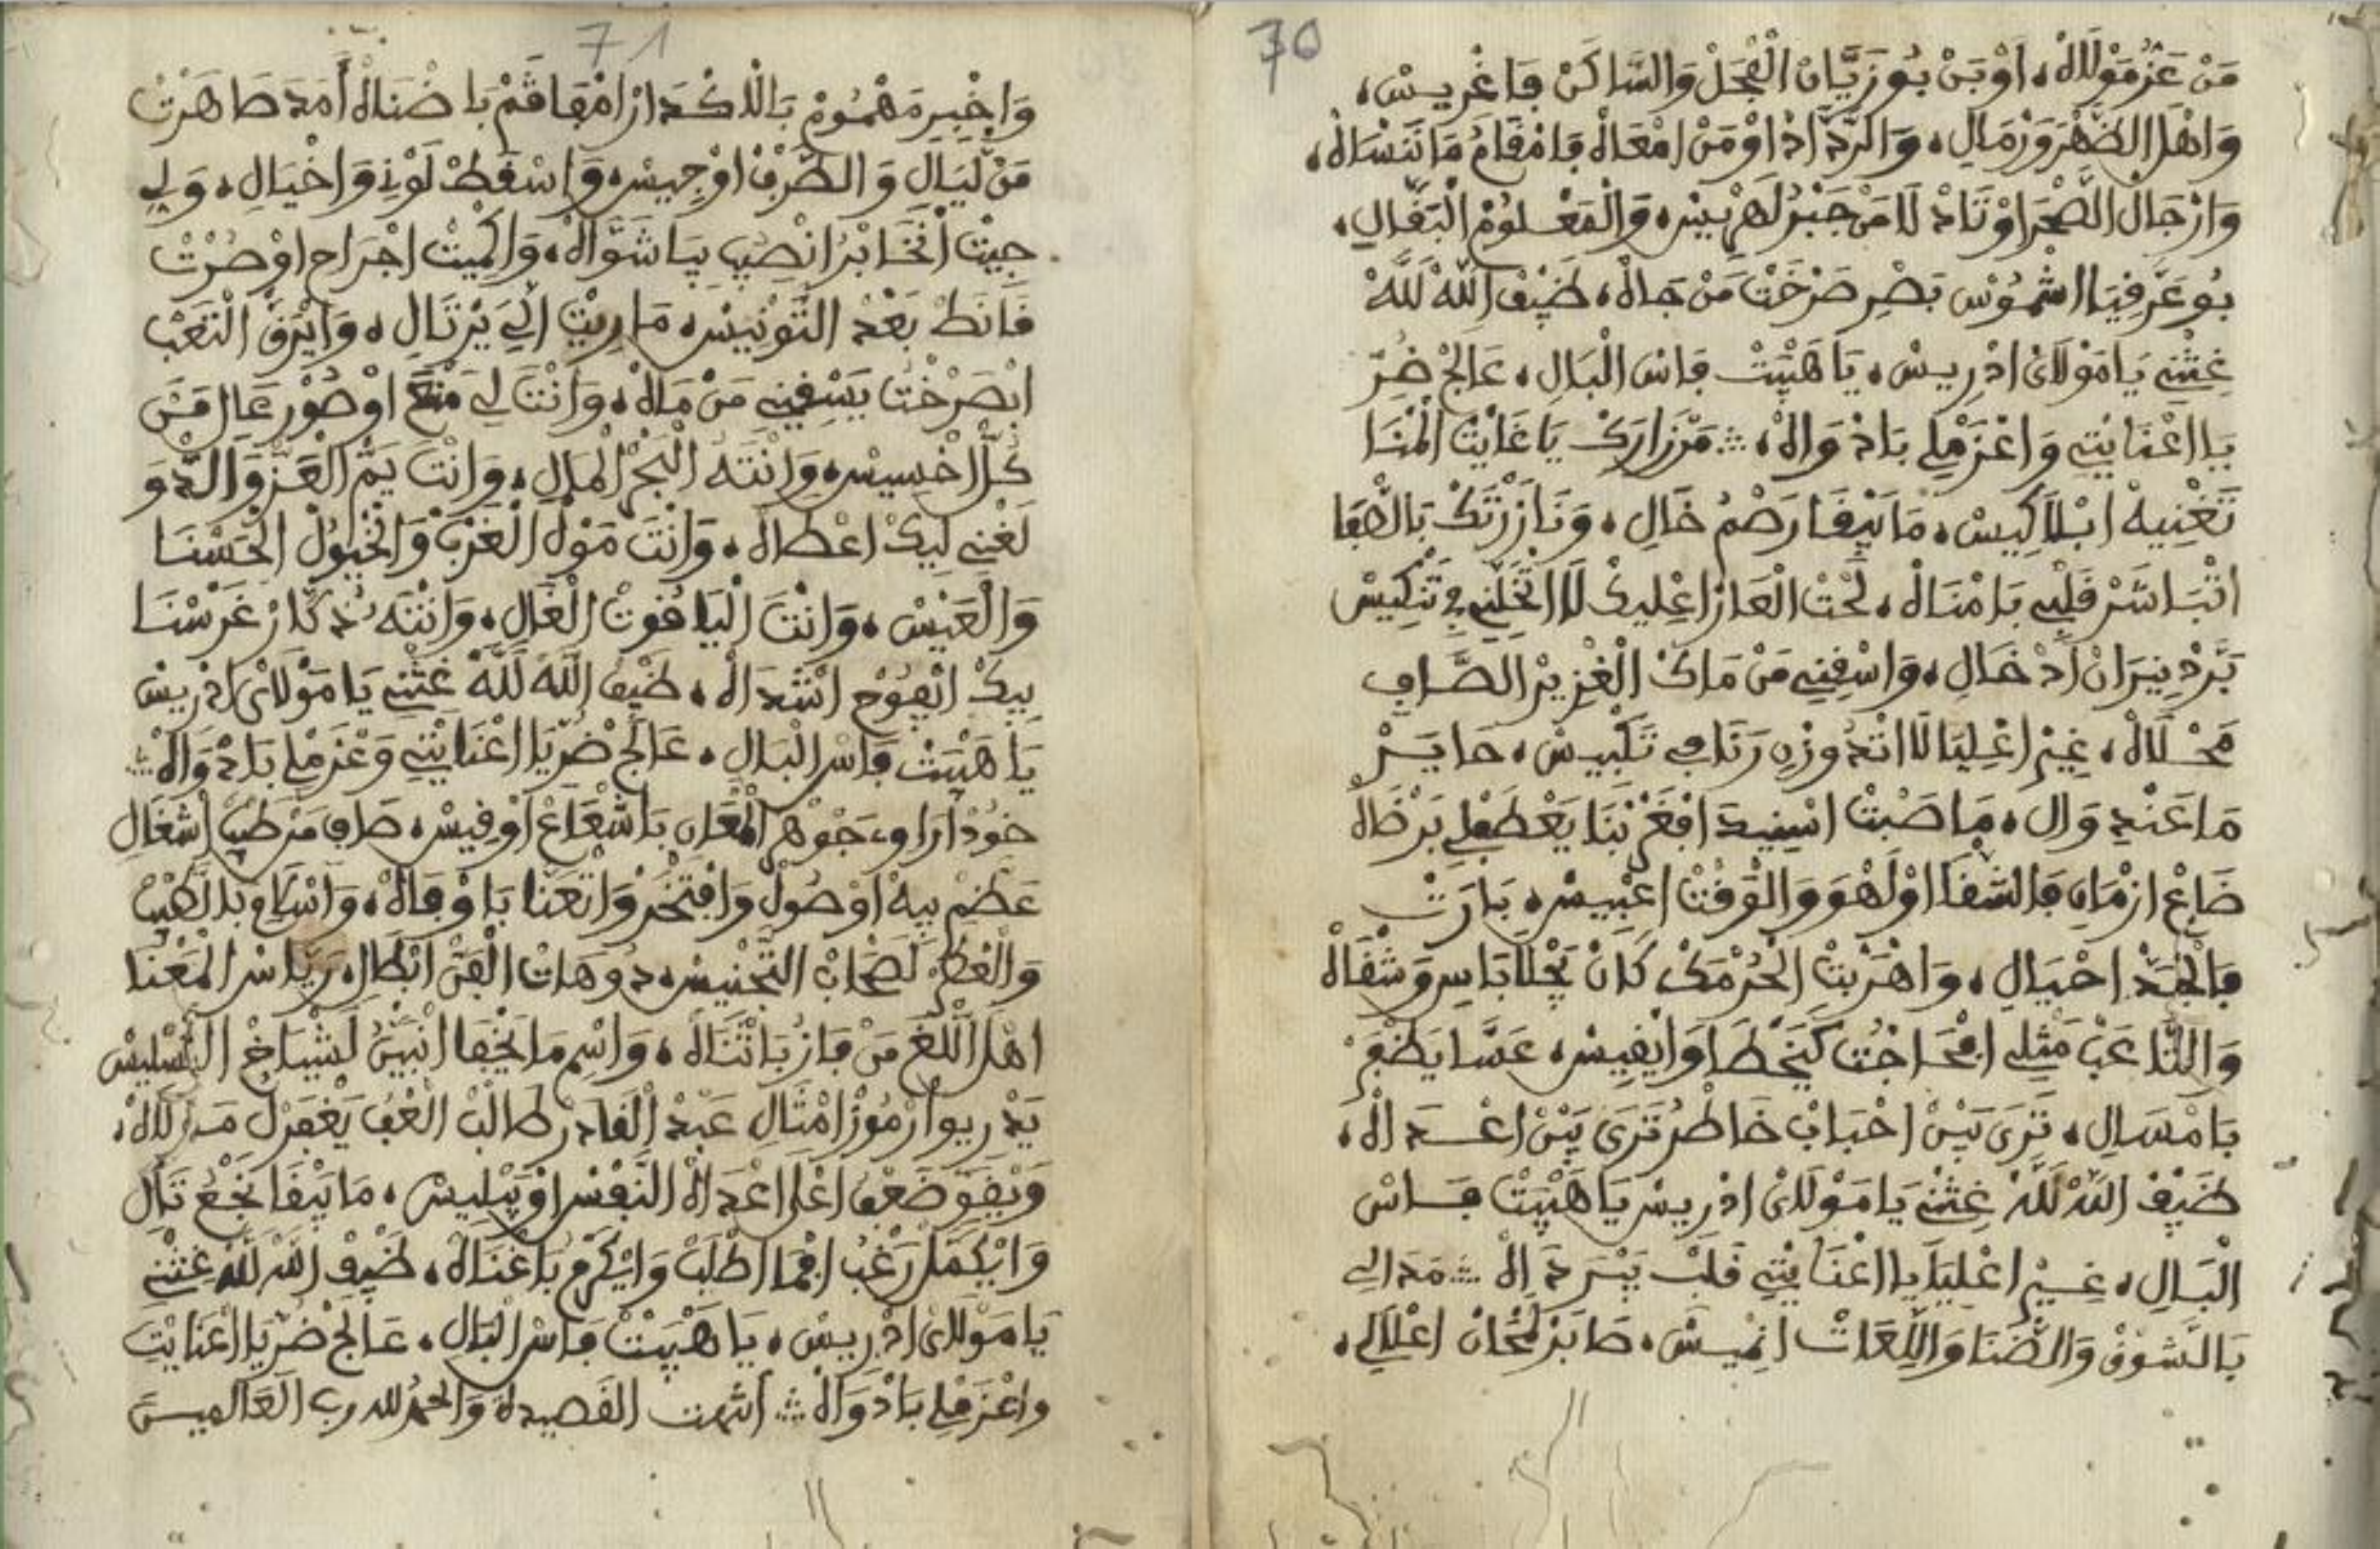 70
مَنْ عَزّْ مَوْلَالْهْ، اَوْبَنْ بُوزَيَّانْ الْفْحَلْ وَالسَّاكَنْ فَاغْرِيسْ،
وَاهْلْ الظَّهْرَ وَرْمَالِ، وَالرَّدَّادْ اوْمَنْ امْعَاهْ فَامْقَامُ مَا نَنْسَاهْ،
وَارْجَالْ الصَّحْرَا وْتَادْ لَا مَنْ جَبْرْ لَهُمْ بِيسْ، وَالْمَعْلُومْ الْبَقَّالِ،
بُوعَرَّفِيَا الشْمُوسْ بَصْرِ صَرْخَتْ مَنْ جَاهْ، ضَيْفْ اللَّهْ لَلَّهْ
غِثْنِي يَا مَوْلَايْ ادْرِيسْ، يَا هَيْبَتْ فَاسْ الْبَالِ، عَالَجْ ضُرِّ
يَا اعْنَايْتِي وَاعْزَمْ لِي بَادْوَاهْ، مَنْ زَارَكْ يَا غَايْتْ الْمْنَا
تَغْنِيهْ ابْلَا كِيسْ، مَا يَبْقَا رَصْمُ خَالِ، وَنَا زَرْتَكْ بَالْهْفَا
اتْبَاشَّرْ قَلْبِي بَامْنَاهْ، لَحْتْ الْعَارْ اعْلِيكْ لَا اتْخَلِّنِي فِي تَنْكِيسْ
بَرَّدْ نِيرَانْ ادْخَالِ، وَاسْقِينِي مَنْ مَاكْ الْغْزِيرْ الصَّافِ
مَحْلَاهْ، غِيرْ اعْلِيَا لَا اتْدُوزْهِ رَتَافِي تَكْبِيسْ، حَايَرْ
مَا عَنْدِ وَالِ، مَا صَبْتْ اسْنِيدَ افْغَرْبْنَا يَعْطَفْ لِي بَرْضَاهْ
ضَاعْ ازْمَانِ فَالشّْقَا اوْلَهْوَ وَالْوَقْتْ اعْبِيسْ، بَارَتْ
فَالْجَدّْ احْيَالِ، وَاهْرَبْتْ الْحُرْمَكْ كَانْ يَجْلَا بَاسِي وَشْقَاهْ
وَاللَّاعَبْ مَثْلِي افْحَاجْتُ كَيَخْطَا وَايْفِيسْ، عَسَّا يَظْفَرْ
بَامْسَالِ، تَرَى بَيْنْ احْبَابْ خَاطْرُ تَرَى بَيْنْ اعْدَاهْ،
ضَيْفْ اللَّهْ لَلَّهْ غِثْنِي يَا مَوْلَايْ ادْرِيسْ يَا هَيْبَتْ فَاسْ
الْبَالِ، غِيرْ اعْلِيَا يَا اعْنَايْتِي قَلْبْ يَبْرَدْ اهْ مَدَالِي
بَالشَّوْقْ وَالضَّنَا وَاللِّعَاتْ انْمِيسْ، صَابَرْ لَمْحَانْ اعْلَالِي،
71
وَاخْبِيرْ مَهْمُومْ بَالْاكْدَارْ امْفَاقَمْ بَاضْنَاهْ أَمَدْ ظَاهَرْتْ
مَنْ لَيَالِ وَالطَّرْفْ اوْجِيسْ، وَاسْقَطْ لَوْنِي وَاخْيَالِ، وَلِي
جِيتْ انْخَابْرُ انْصِيبْ بِيَا شَوَّاهْ، وَاكْمِيتْ اجْرَاحِ اوْصُرْتْ
قَانَطْ بَعْدْ التَّوْنِيسْ، مَا رِيتْ الِّي يَرْتَالِ، وَايْرَقّْ الْتَعْبْ
ابْصَرْخْتُ يَسْقِينِي مَنْ مَاهْ، وَانْتَ لِي مَنْعْ اوْصُورْ عَالِ مَنْ
كُلّْ اخْسِيسْ، وَانْتَهَ الْبَحْرْ الْمَالِ، وَانْتَ يَمّْ الْعَزّْ وَالدّْوَ
لَغْنِي لِيكْ اعْطَاهْ، وَانْتَ مَوْلْ الْغَرْبْ وَالْخْيُولْ الْحَسْنَا
وَالْعَيْسْ، وَانْتَ الْيَاقُوتْ الْغَالِ، وَانْتَهَ تُذْكَارْ غَرْسْنَا
بِيكْ انْفُوحْ انْشْدَاهْ، ضَيْفْ اللَّهْ لَلَّهْ غِثْنِي يَا مَوْلَايْ ادْرِيسْ
يَا هَيْبَتْ فَاسْ الْبَالِ، عَالَجْ ضُرْ يَا اعْنَايْتِي وَعْزَمْ لِي بَادْوَاهْ
خُودْ ارَاوِي جَوْهَرْ الْمْعَانِ بَاشْعَاعْ اوْفِيسْ، صَافِ مَنْ طَبْ اشْغَالِ
عَظَمْ بِيهْ اوْصُولْ وَافْتَخَرْ وَاتْعَنَا بَاوْفَاهْ، وَاسْلَامِ بَالْهَيْبْ
وَالْعْطَرْ لَصْحَابْ التَّجْنِيسْ، دُوهَاتْ الْفَنّْ ابْطَالِ، رَيَّاسْ الْمَعْنَا
اهْلْ اللّْغَ مَنْ فَازُ بَاثْنَاهْ، وَاسْمِ مَا يَخْفَا انْبَيْنُ لَشْيَاخْ التَّسْلِيسْ
يَدْرِيوْ ارْمُوزْ امْثَالِ عَبْدْ الْقَادَرْ طَالْبْ الْعْفُ يَغْفَرْ لْ مَوْلَاهْ،
وَيْقَوِّ ضَعْفُ اعْلَ اعْدَاهْ النَّفْسْ اوْيَبْلِيسْ، مَا يَبْقَا نَجْعُ تَالِ
وَايْكَمَّلْ رَغْبُ افْمَا اطْلَبْ وَايْكَرْمُ بَاغْنَاهْ، ضَيْفْ اللَّهْ لَلَّهْ غِثْنِي
يَا مَوْلَايْ ادْرِيسْ، يَا هَيْبَتْ فَاسْ الْبَالِ، عَالَجْ ضُرْ يَا اعْنَايْتِ
وَاعْزَمْ لِي بَادْوَاهْ انتهت القَصِيدة وَالحمد لله رب العَالميــن